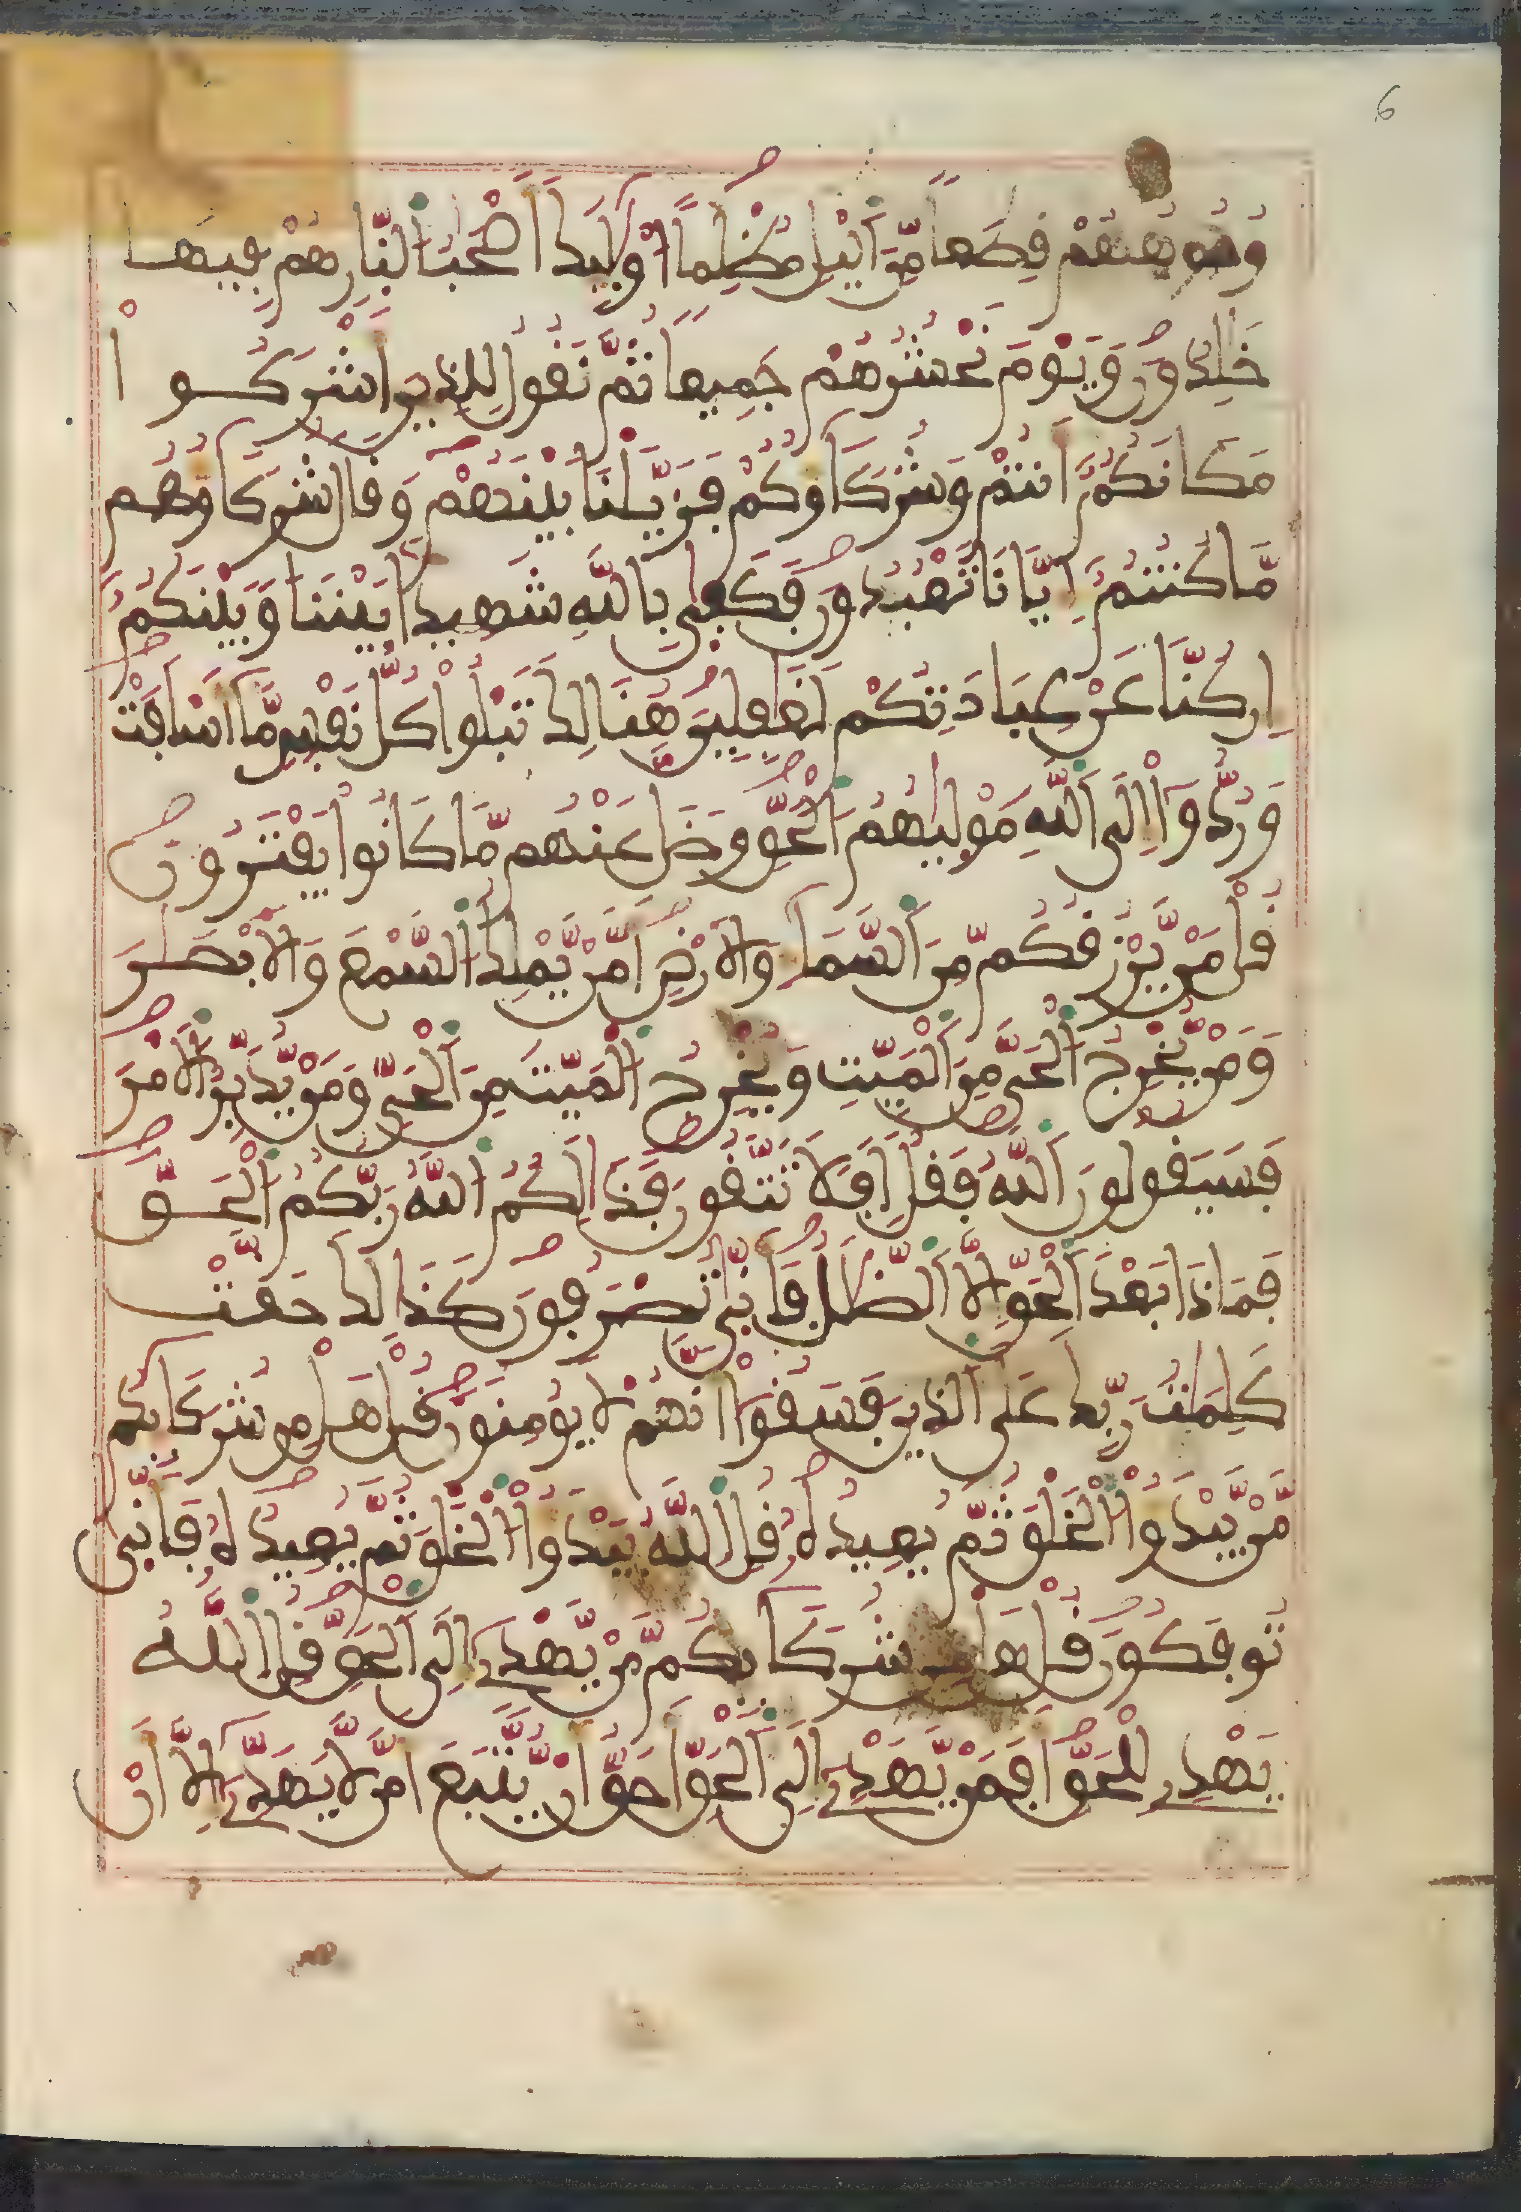 6
وُجُوهُهُمْ قِطَعاً مِّنَ اَ۬ليْلِ مُظْلِماً ا۟وْلَٰٓئِكَ أَصْحَٰبُ اُ۬لنّ۪ارِ هُمْ فِيهَا
خَٰلِدُونَ وَيَوْمَ نَحْشُرُهُمْ جَمِيعاً ثُمَّ نَقُولُ لِلذِينَ أَشْرَكُواْ
مَكَانَكُمُۥٓ أَنتُمْ وَشُرَكَآؤُكُمْ فَزَيَّلْنَا بَيْنَهُمْ وَقَالَ شُرَكَآؤُهُم
مَّا كُنتُمُۥٓ إِيَّانَا تَعْبُدُونَ فَكَفَىٰ بِاللَّهِ شَهِيداَۢ بَيْنَنَا وَبَيْنَكُمُۥٓ
إِن كُنَّا عَنْ عِبَادَتِكُمْ لَغَٰفِلِينَ هُنَالِكَ تَبْلُواْ كُلُّ نَفْسٍ مَّآ أَسْلَفَتْ
وَرُدُّوٓاْ إِلَى اَ۬للَّهِ مَوْلَيٰهُمُ اُ۬لْحَقِّ وَضَلَّ عَنْهُم مَّا كَانُواْ يَفْتَرُونَ
قُلْ مَنْ يَّرْزُقُكُم مِّنَ اَ۬لسَّمَآءِ وَالَارْضِ أَمَّنْ يَّمْلِكُ اُ۬لسَّمْعَ وَالَابْصَٰرَ
وَمَنْ يُّخْرِجُ اُ۬لْحَيَّ مِنَ اَ۬لْمَيِّتِ وَيُخْرِجُ اُ۬لْمَيِّتَ مِنَ اَ۬لْحَيِّ وَمَنْ يُّدَبِّرُ اُ۬لَامْرَ
فَسَيَقُولُونَ اَ۬للَّهُ فَقُلَ اَفَلَا تَتَّقُونَ فَذَٰلِكُمُ اُ۬للَّهُ رَبُّكُمُ اُ۬لْحَقُّ
فَمَاذَا بَعْدَ اَ۬لْحَقِّ إِلَّا اَ۬لضَّلَٰلُ فَأَنّ۪ىٰ تُصْرَفُونَ كَذَٰلِكَ حَقَّتْ
كَلِمَٰتُ رَبِّكَ عَلَى اَ۬لذِينَ فَسَقُوٓاْ أَنَّهُمْ لَا يُومِنُونَ قُلْ هَلْ مِن شُرَكَآئِكُم
مَّنْ يَّبْدَؤُاْ اُ۬لْخَلْقَ ثُمَّ يُعِيدُهُۥ قُلِ اِ۬للَّهُ يَبْدَؤُاْ اُ۬لْخَلْقَ ثُمَّ يُعِيدُهُۥ فَأَنّ۪ىٰ
تُوفَكُونَ قُلْ هَلْ مِن شُرَكَآئِكُم مَّنْ يَّهْدِےٓ إِلَى اَ۬لْحَقِّ قُلِ اِ۬للَّهُ
يَهْدِے لِلْحَقِّ أَفَمَنْ يَّهْدِےٓ إِلَى اَ۬لْحَقِّ أَحَقُّ أَنْ يُّتَّبَعَ أَمَّن لَّا يَهَدِّےٓ إِلَّآ أَنْ